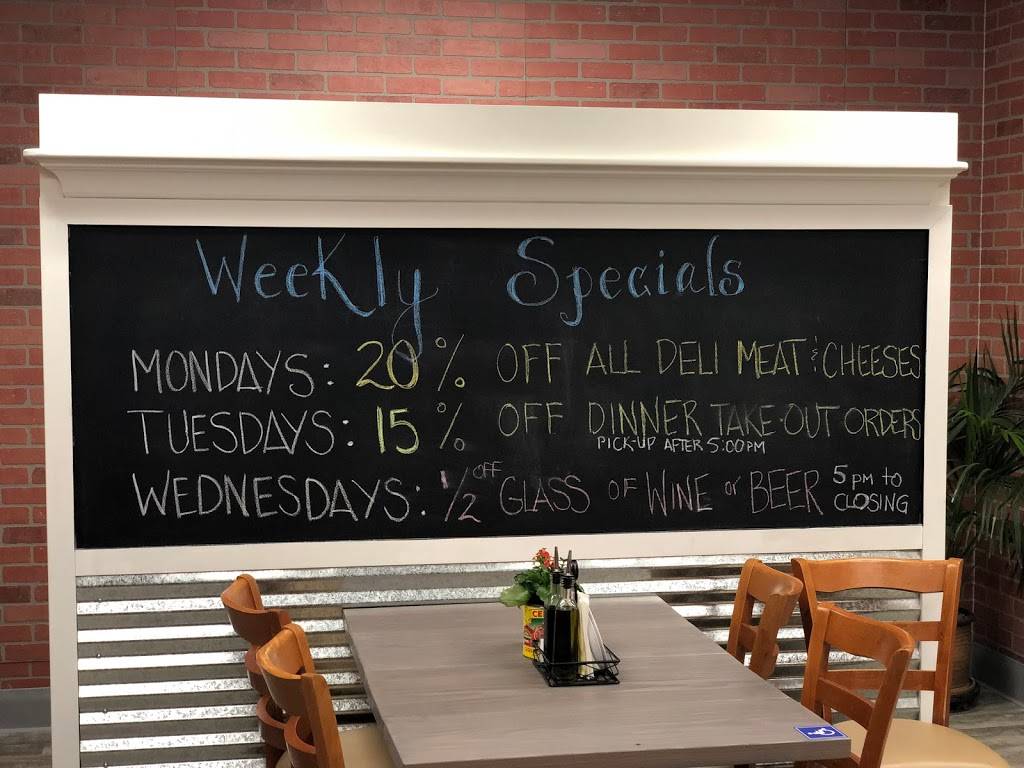 Weekly Specials
MONDAYS: 20% OFF ALL DELI MEAT & CHEESES
TUESDAYS: 15% OFF DINNER TAKE-OUT ORDERS
PICK-UP AFTER 5:00PM
WEDNESDAYS: 1/2 OFF GLASS OF WINE or BEER 5pm to CLOSING
CE